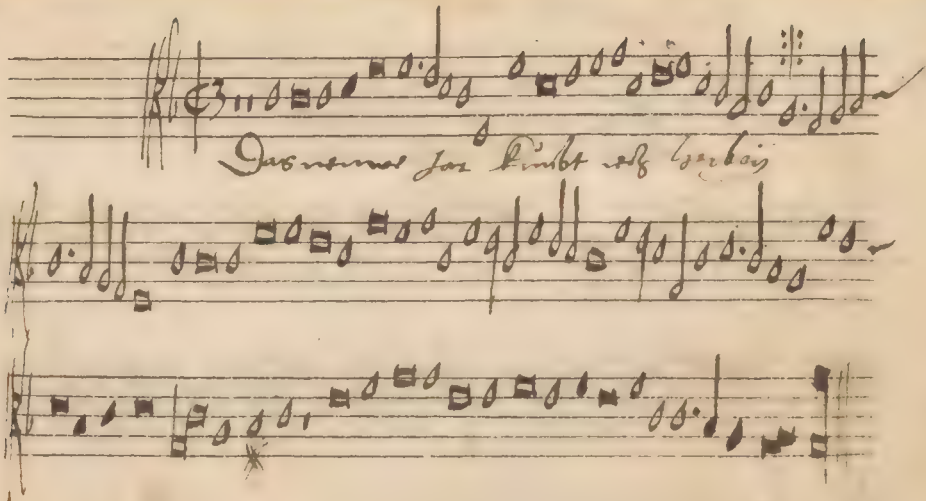 Das neuwe Jar kumbt uns herbeÿ